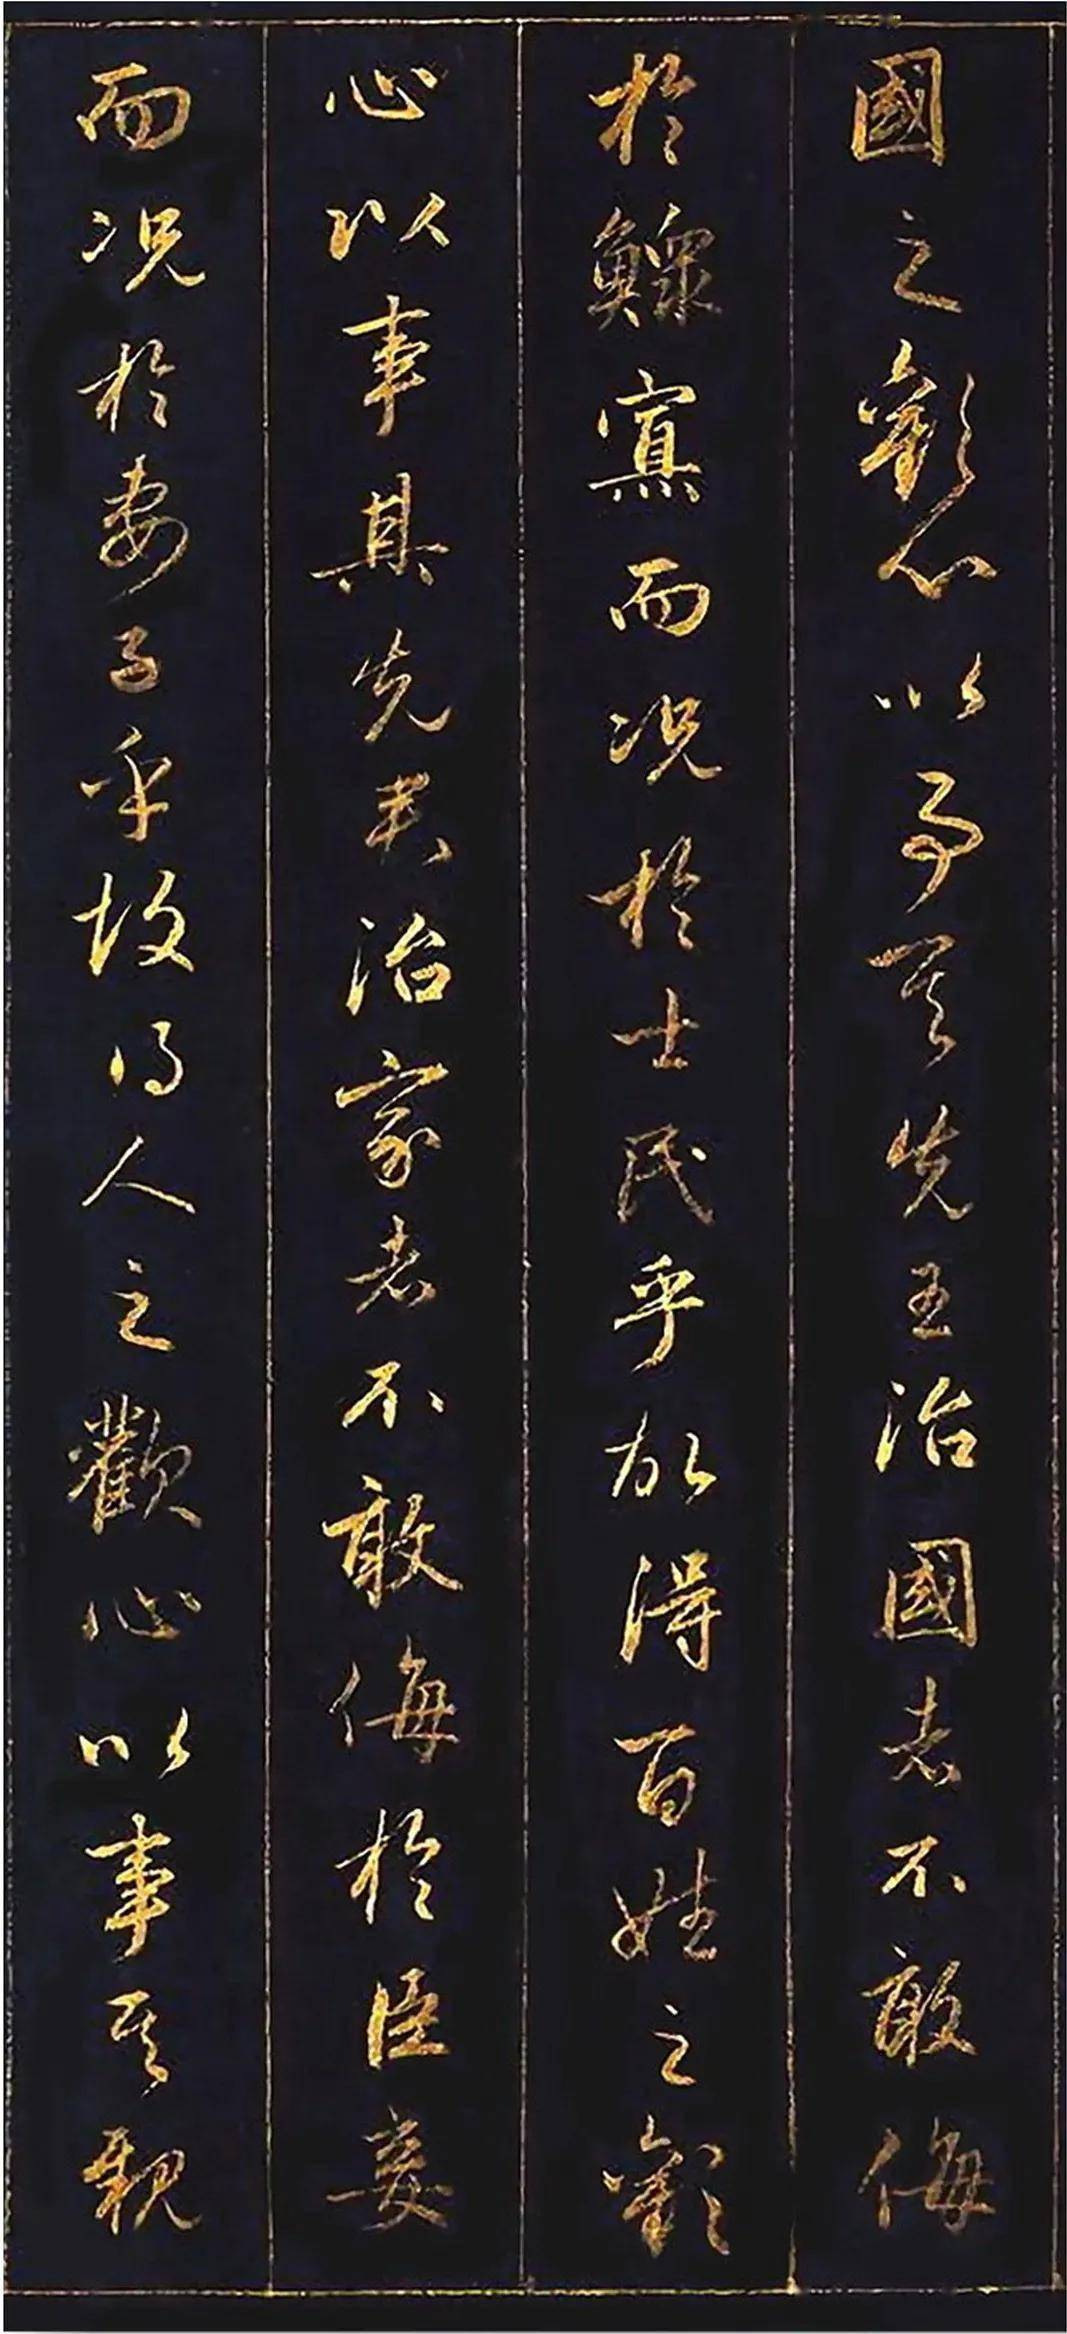 國之歡心以事其先王治國者不敢侮
於鰥寡而况於士民乎故得百姓之歡
心以事其先君治家者不敢侮於臣妾
而况於妻子乎故得人之歡心以事其親